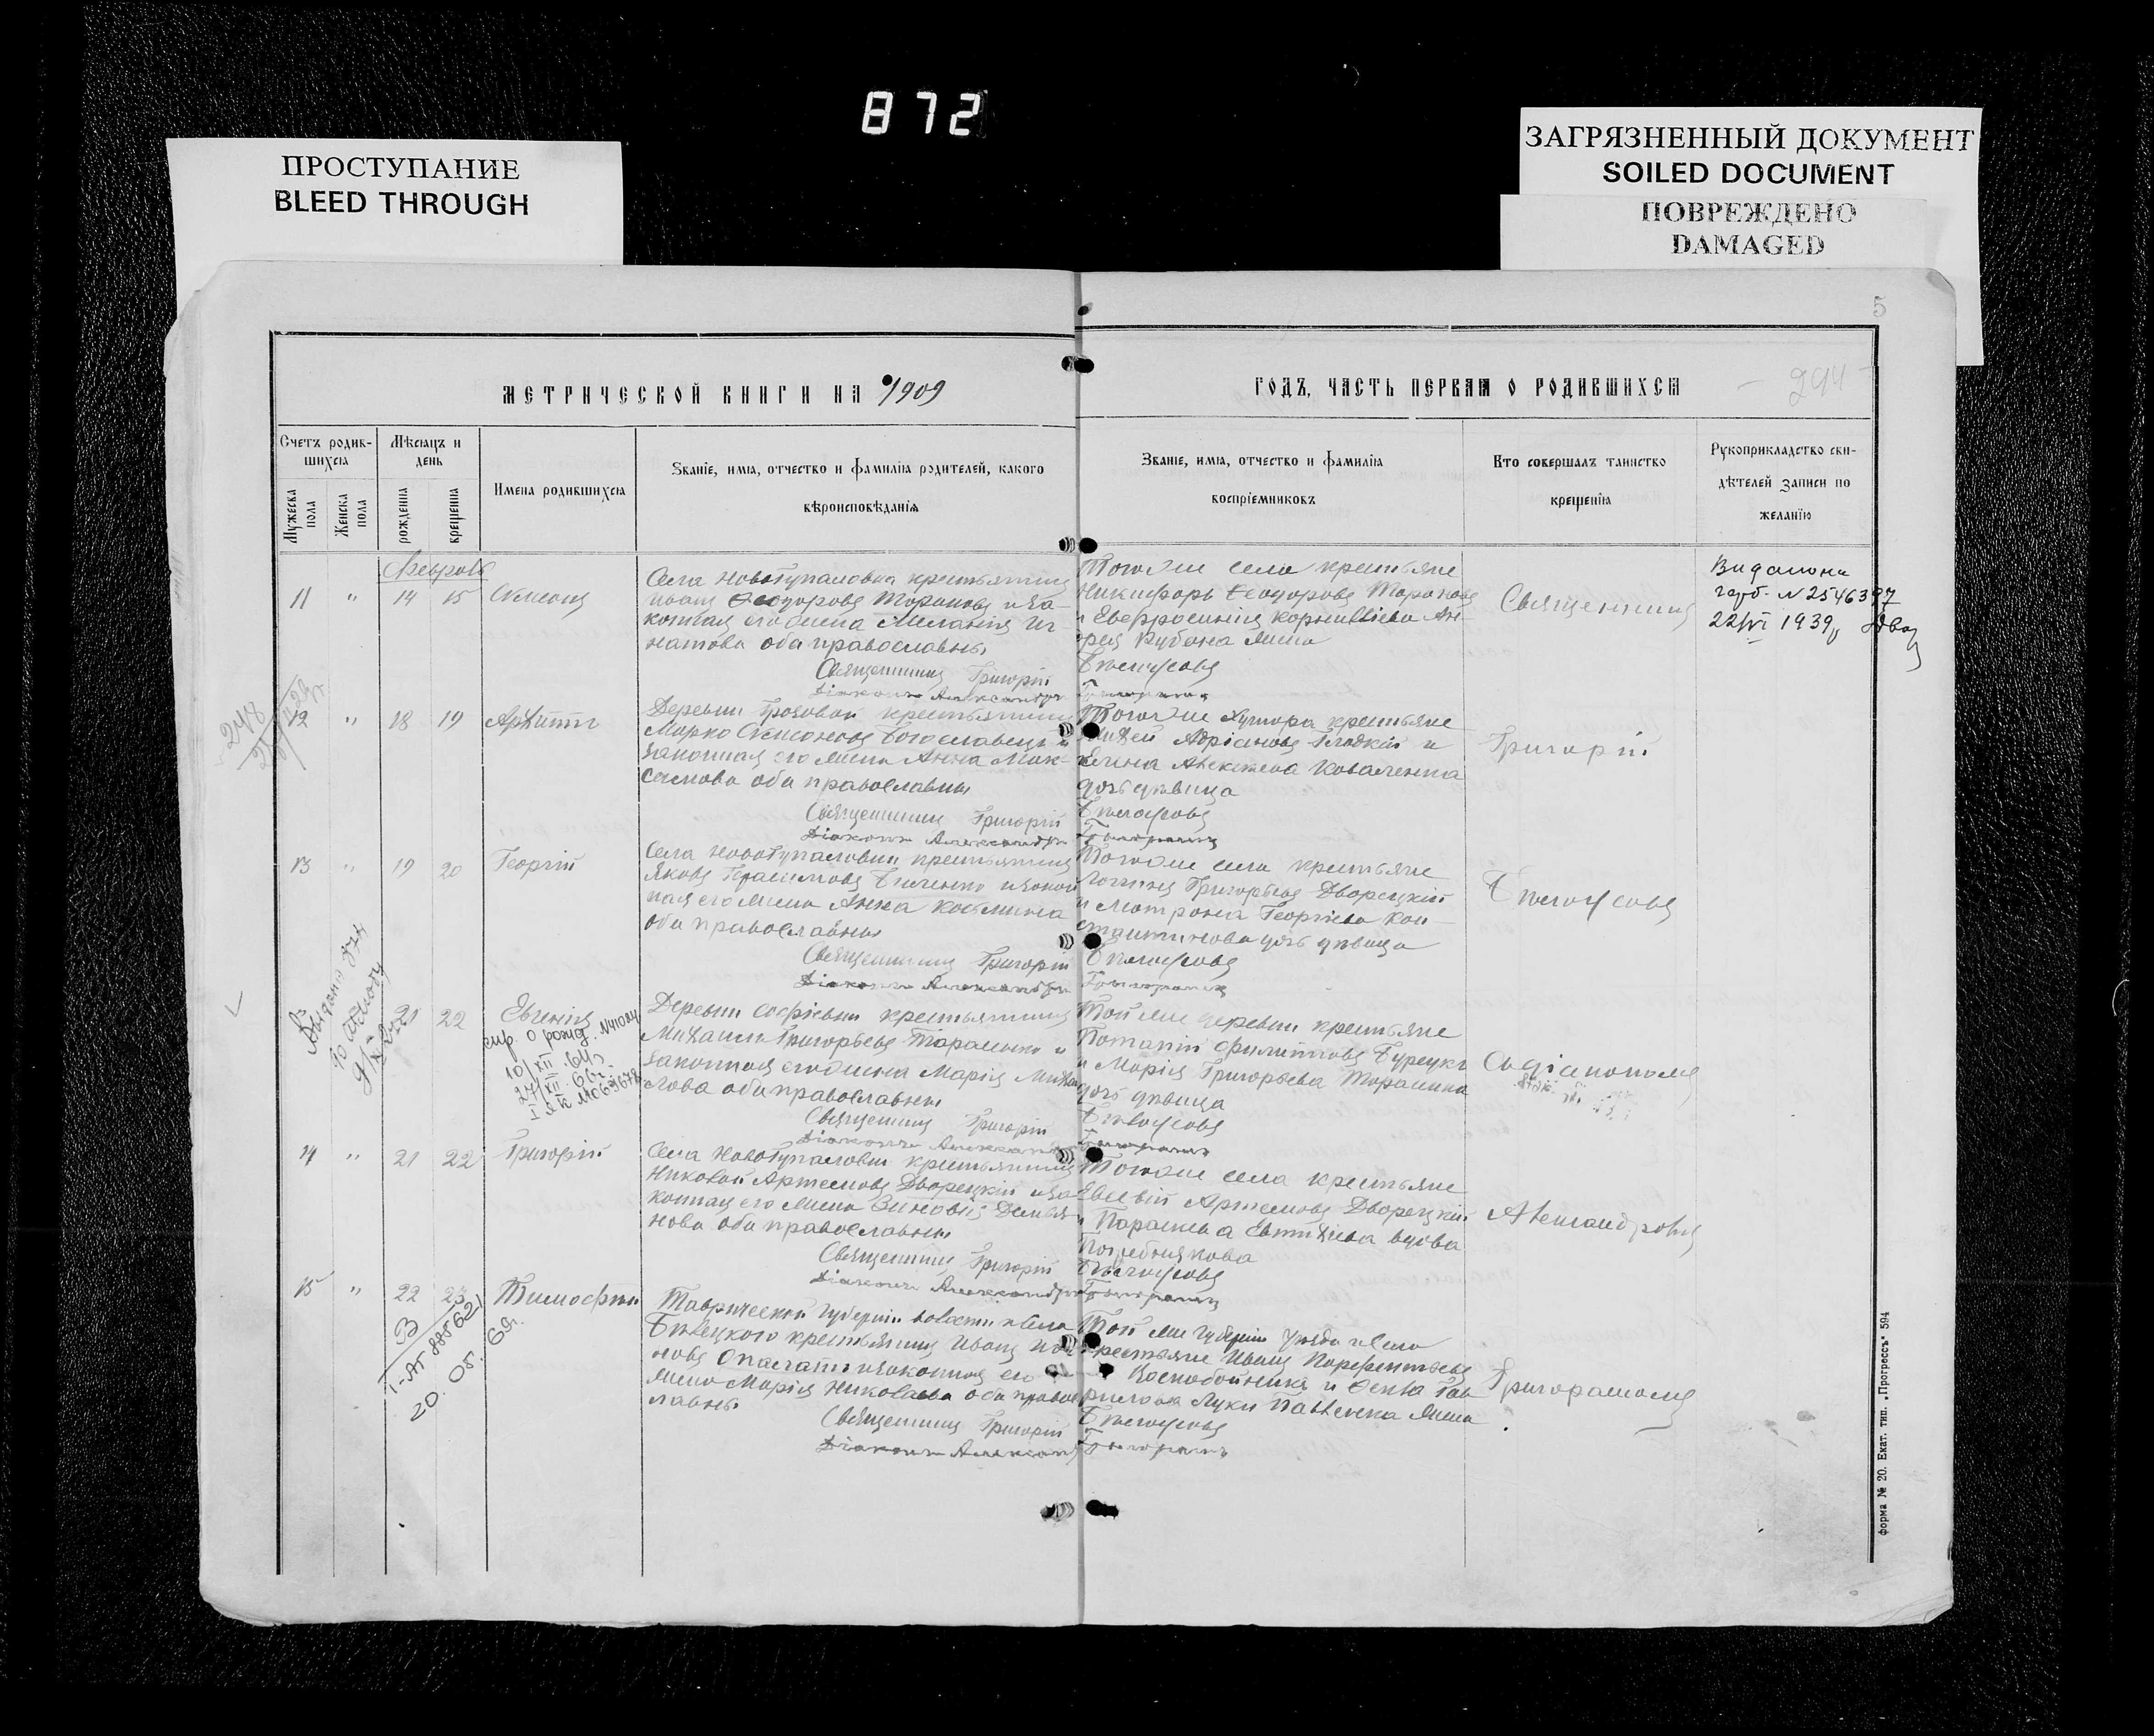 872
ПРОСТУПАНИЕ
BLEED THROUGH
ЗАГРЯЗНЕННЫЙ ДОКУМЕНТ
SOILED DOCUMENT
ПОВРЕЖДЕНО
DAMAGED
5
МЕТРИЧЕСКОЙ КНИГИ НА 1909
ГОДЪ, ЧАСТЬ ПЕРВАЯ О РОДИВШИХСЯ
294
Счетъ родившихся
Мужеска пола
Женска пола
Мѣсяцъ и день
рожденія
крещенія
Имена родившихся
Званіе, имя, отчество и фамилія родителей, какого
вѣроисповѣданія
Званіе, имя, отчество и фамилія
воспріемниковъ
Кто совершалъ таинство
крещенія
Рукоприкладство сви-
дѣтелей записи по
желанію
Февраль
11 " 14 15 Симеонъ
Села Новогупаловка крестьянинъ
Иванъ Ѳеодоровъ Тарановъ и за-
конная его жена Меланія Иг
натова оба православны
Священникъ Григорій
Діаконъ Александръ
Того же села крестьяне
Никифоръ Ѳеодоровъ Тарановъ
и Евфросинія Корниліева Ан-
дрея Рубана жена
Бѣлоусовъ
Григорашъ
Священникъ
Видано
герб. N 2546397
22/VI 1939
12 " 18 19 Архиппъ
Деревни Грозовой крестьянинъ
Марко Симоновъ Богославецъ и
законная его жена Анна Мак-
симова оба православны
Священникъ Григорій
Діаконъ Александръ
Того же хутора крестьяне
Адріановъ Гладкій и
Елена Алексѣева Коваленка
дочь дѣвица
Бѣлоусовъ
Григорашъ
Григорій
13 " 19 20 Георгій
Села Новогупаловки крестьянинъ
Яковъ Герасимовъ Биленко и закон
ная его жена Анна Косьмина
оба православны
Священникъ Григорій
Діаконъ Александръ
Того же села крестьяне
Логинъ Григорьевъ Дворецкій
и Матрона Георгіева Кон-
стантинова дочь дѣвица
Бѣлоусовъ
Григорашъ
Бѣлоусовъ
21 22 Евгенія
спр. о рожд. N41024
10/XII 64г.
27/XII 66г.
Деревни Софіевки крестьянинъ
Михаилъ Григорьевъ Тараненко и
законная его жена Марія Михаи
лова оба православны
Священникъ Григорій
Діаконъ Александръ
Той же деревни крестьяне
Потапій Филипповъ Бурецкъ
и Марія Григорьева Тараненка
дочь дѣвица
Бѣлоусовъ
Григорашъ
Съ діакономъ
14 " 21 22 Григорій
Села Новогупаловки крестьянинъ
Николай Артемовъ Дворецкій и за
конная его жена Зиновія Демья
нова оба православны
Священникъ Григорій
Діаконъ Александръ
Того же села крестьяне
Евсевій Артемовъ Дворецкій
и Параскева Евтихіева вдова
Погребнякова
Бѣлоусовъ
Григорашъ
Александромъ
15 " 22 23 Тимофей
20. 05. 69г.
Таврической губерніи волости и села
Бѣлецкого крестьянинъ Иванъ Ива
новъ Опалатъ и законная его
жена Марія Николаева оба правос
лавны
Священникъ Григорій
Діаконъ Александръ
Той же губерніи уѣзда и села
крестьяне Иванъ Парфентьевъ
Коснобойникъ и Ѳекла Гав
рилова Луки Павленка жена
Бѣлоусовъ
Григорашъ
Григорашомъ
Форма № 20. Екат. тип. „Прогрессъ" 594